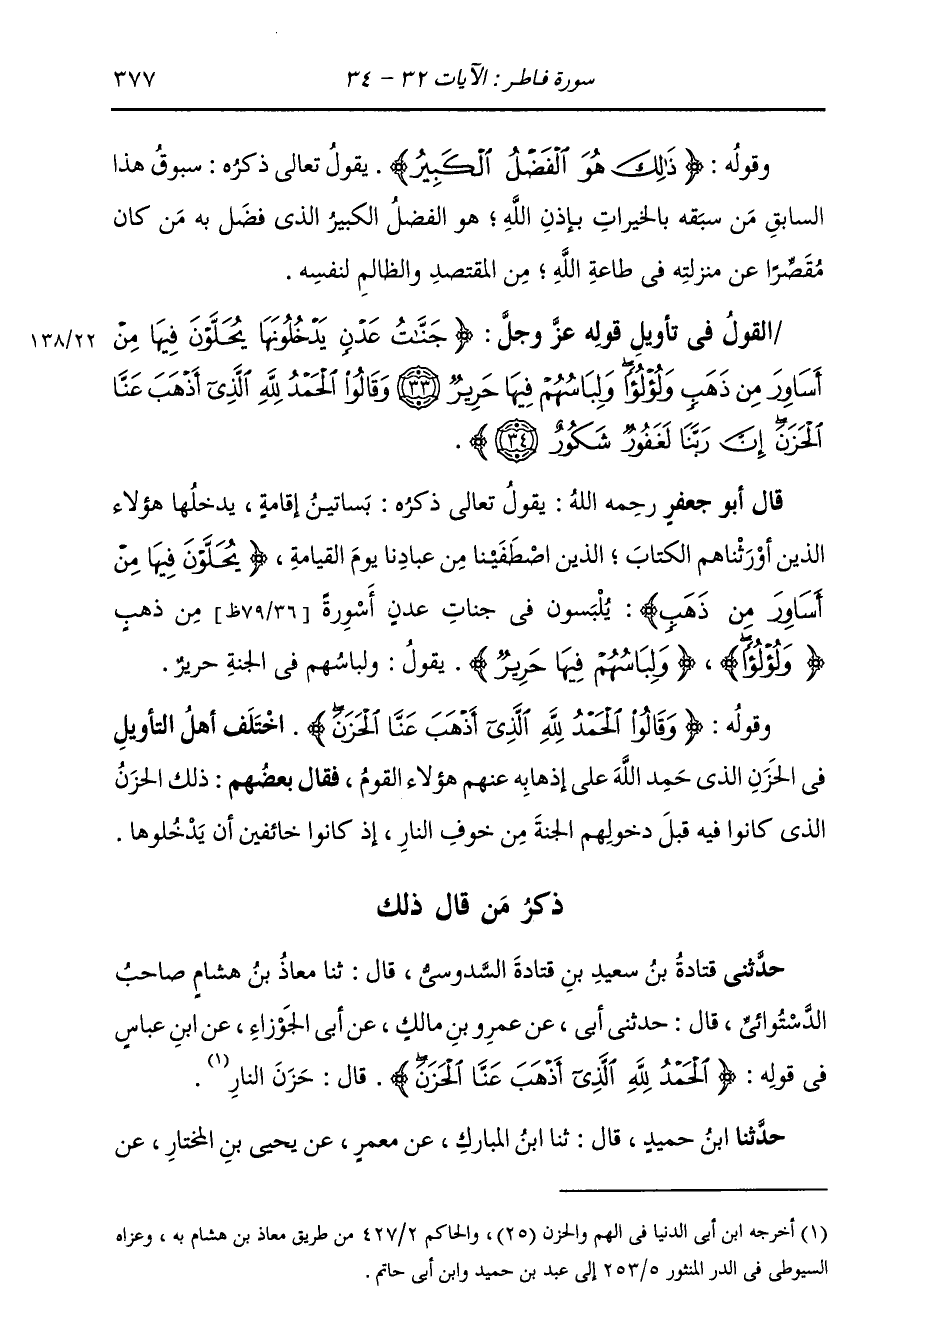 سورة فاطر : الآيات ٣٢ - ٣٤ ٣٧٧
وقولُه : ﴿ ذَٰلِكَ هُوَ ٱلْفَضْلُ ٱلْكَبِيرُ ﴾ . يقولُ تعالى ذكرُه : سبوقُ هذا
السابقِ مَن سبَقه بالخيراتِ بإذنِ اللَّهِ ؛ هو الفضلُ الكبيرُ الذى فضَل به مَن كان
مُقَصِّرًا عن منزلتِه فى طاعةِ اللَّهِ ؛ مِن المقتصدِ والظالمِ لنفسِه .
/القولُ فى تأويلِ قولِه عزَّ وجلَّ : ﴿ جَنَّـٰتُ عَدْنٍ يَدْخُلُونَهَا يُحَلَّوْنَ فِيهَا مِنْ ١٣٨/٢٢
أَسَاوِرَ مِن ذَهَبٍ وَلُؤْلُؤًا ۖ وَلِبَاسُهُمْ فِيهَا حَرِيرٌ ﴿٣٣﴾ وَقَالُوا۟ ٱلْحَمْدُ لِلَّهِ ٱلَّذِىٓ أَذْهَبَ عَنَّا
ٱلْحَزَنَ ۖ إِنَّ رَبَّنَا لَغَفُورٌ شَكُورٌ ﴿٣٤﴾ ﴾ .
قال أبو جعفرٍ رحِمه اللهُ : يقولُ تعالى ذكرُه : بَساتينُ إقامةٍ ، يدخلُها هؤلاء
الذين أوْرَثْناهم الكتابَ ؛ الذين اصْطَفَيْنا مِن عبادِنا يومَ القيامةِ ، ﴿ يُحَلَّوْنَ فِيهَا مِنْ
أَسَاوِرَ مِن ذَهَبٍ ﴾ : يُلْبَسون فى جناتِ عدنٍ أَسْوِرةً [٧٩/٣٦ظ] مِن ذهبٍ
﴿ وَلُؤْلُؤًا ۖ ﴾ ، ﴿ وَلِبَاسُهُمْ فِيهَا حَرِيرٌ ﴾ . يقولُ : ولباسُهم فى الجنةِ حريرٌ .
وقولُه : ﴿ وَقَالُوا۟ ٱلْحَمْدُ لِلَّهِ ٱلَّذِىٓ أَذْهَبَ عَنَّا ٱلْحَزَنَ ۖ ﴾ . اخْتَلَف أهلُ التأويلِ
فى الحزَنِ الذى حَمِد اللَّهَ على إذهابِه عنهم هؤلاء القومُ ، فقال بعضُهم : ذلك الحزَنُ
الذى كانوا فيه قبلَ دخولِهم الجنةَ مِن خوفِ النارِ ، إذ كانوا خائفين أن يَدْخُلوها .
ذكرُ مَن قال ذلك
حدَّثنى قتادةُ بنُ سعيدِ بنِ قتادةَ السَّدوسىُّ ، قال : ثنا معاذُ بنُ هشامٍ صاحبُ
الدَّسْتُوائىِّ ، قال : حدثنى أبى ، عن عمرِو بنِ مالكٍ ، عن أبى الجَوْزاءِ ، عن ابنِ عباسٍ
فى قولِه : ﴿ ٱلْحَمْدُ لِلَّهِ ٱلَّذِىٓ أَذْهَبَ عَنَّا ٱلْحَزَنَ ۖ ﴾ . قال : حَزَنَ النارِ (١) .
حدَّثنا ابنُ حميدٍ ، قال : ثنا ابنُ المباركِ ، عن معمرٍ ، عن يحيى بنِ المختارِ ، عن
(١) أخرجه ابن أبى الدنيا فى الهم والحزن (٢٥) ، والحاكم ٤٢٧/٢ من طريق معاذ بن هشام به ، وعزاه
السيوطى فى الدر المنثور ٢٥٣/٥ إلى عبد بن حميد وابن أبى حاتم .